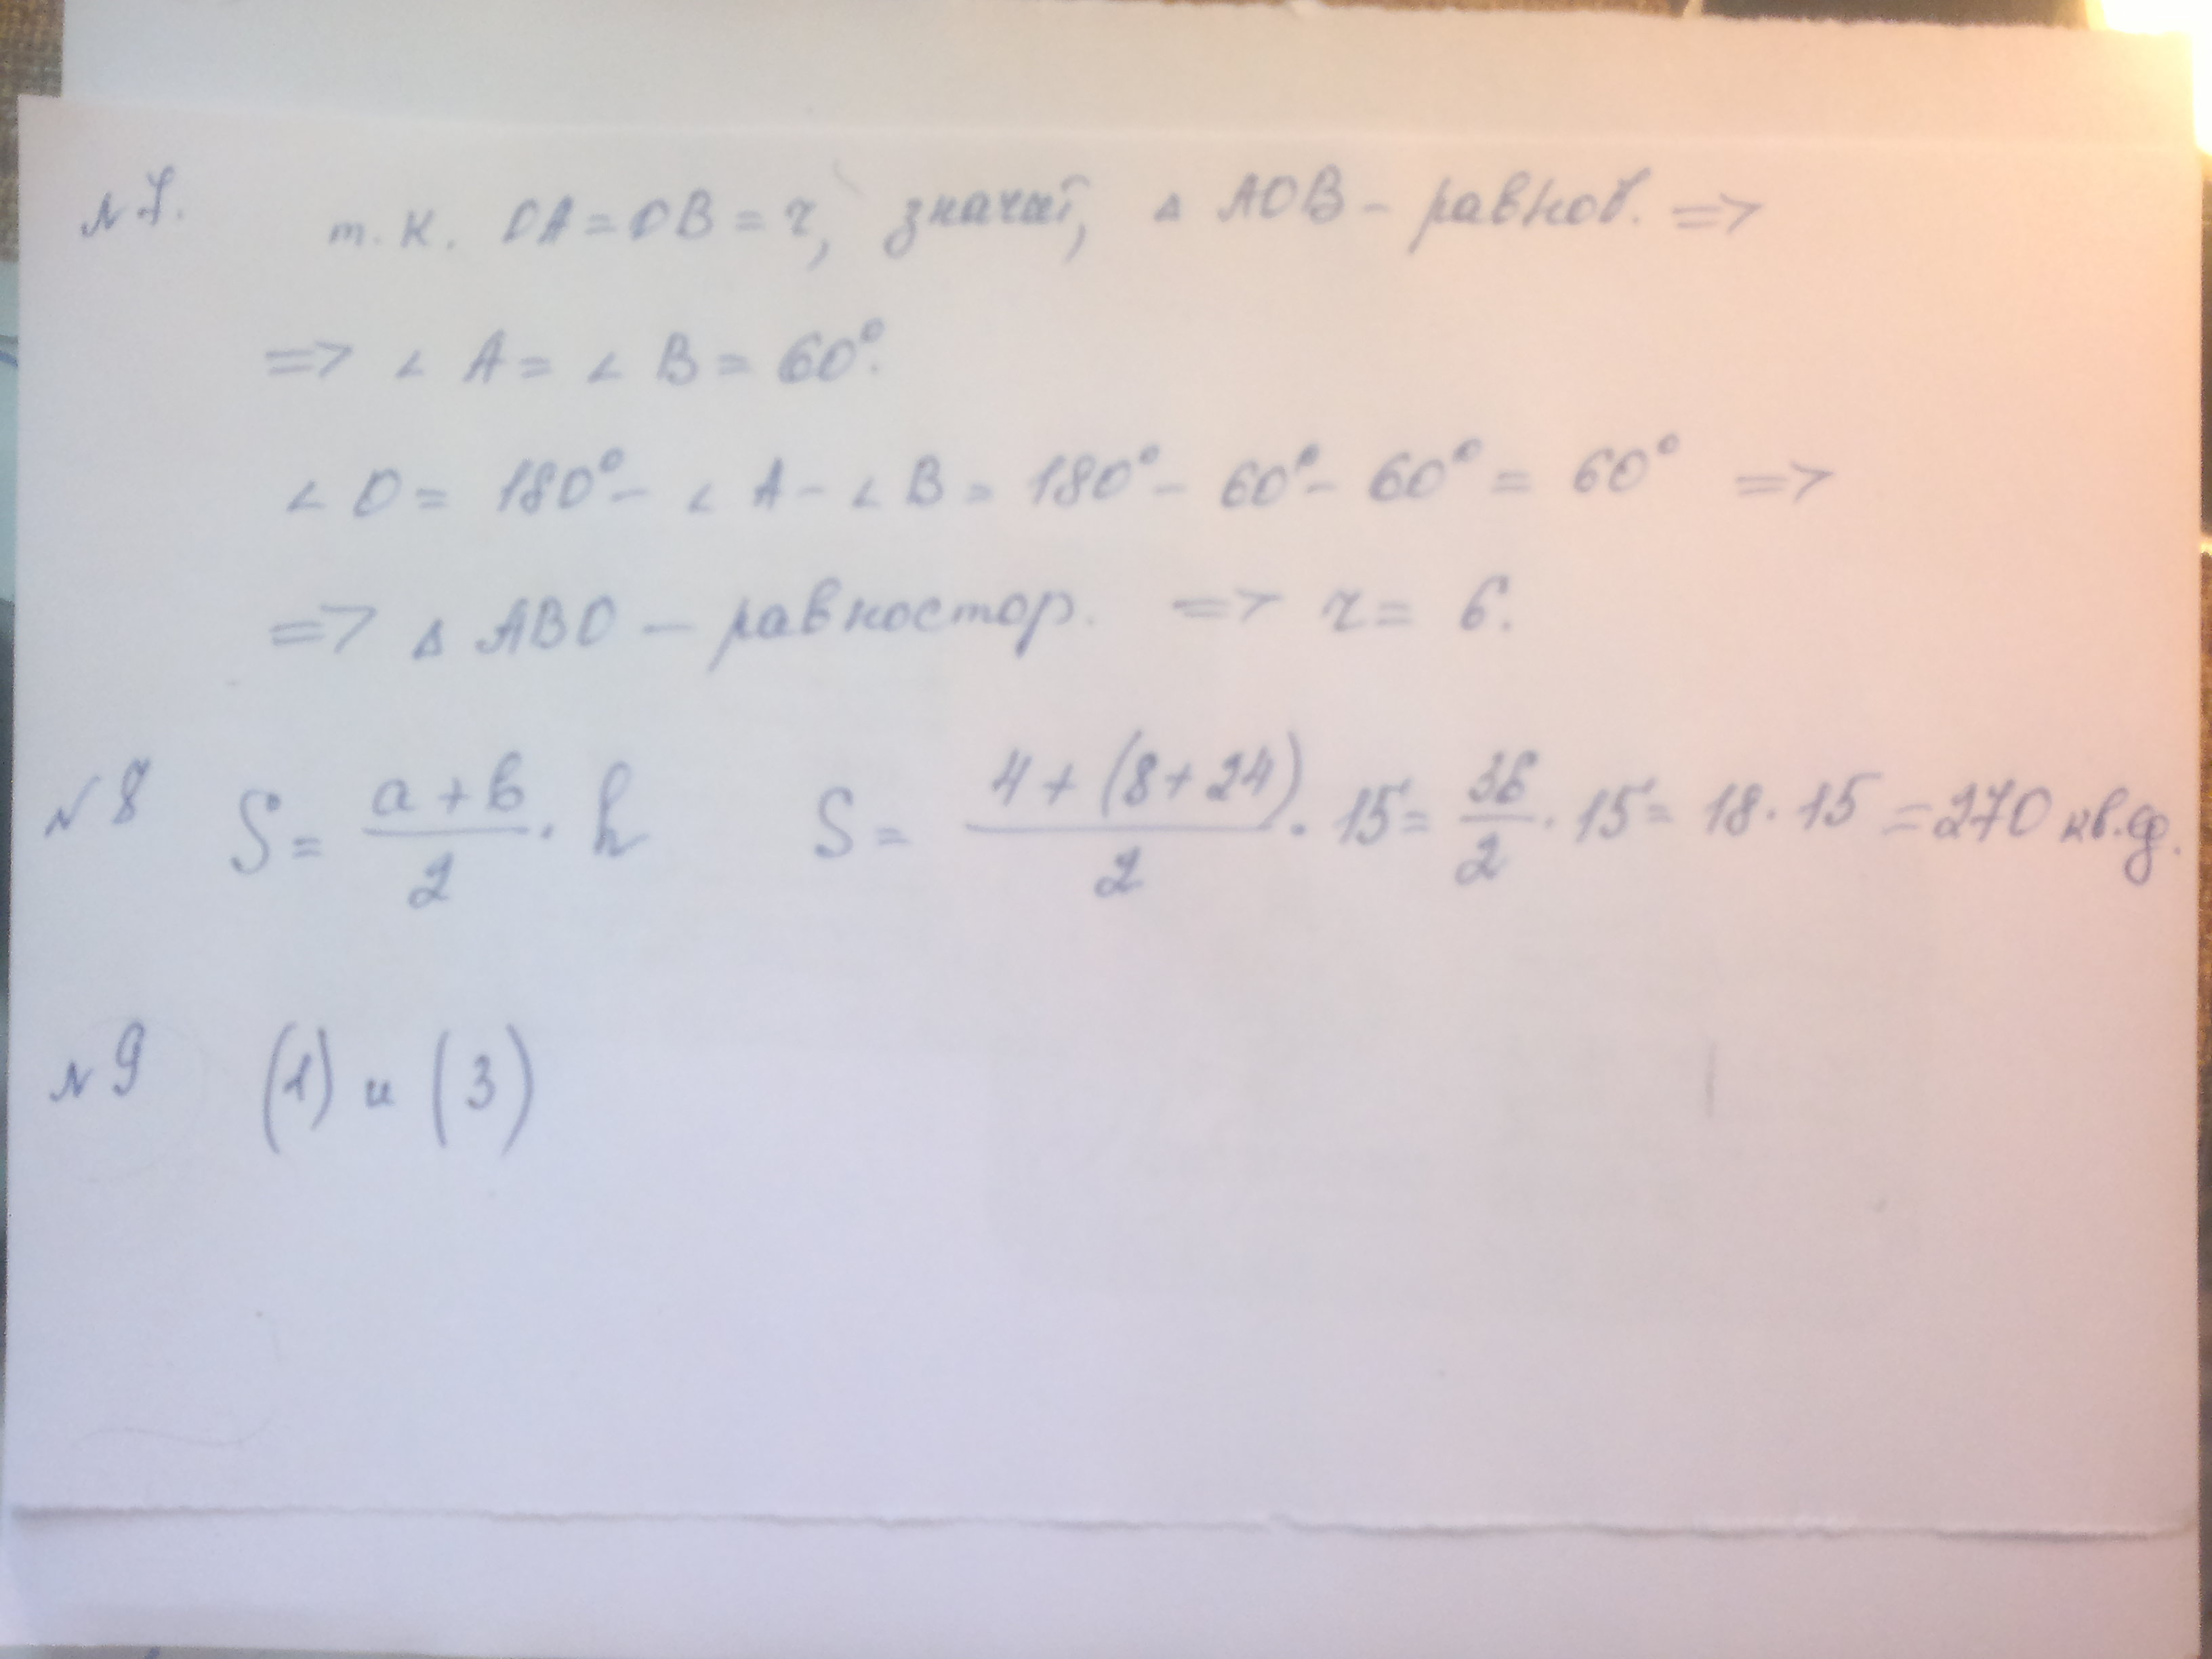 №7. т.к. OA=OB=r, значит, △ AOB – равноб. =>
=> ∠ A = ∠ B = 60°.
∠ O = 180° – ∠ A – ∠ B = 180° – 60° – 60° = 60° =>
=> △ ABO – равностор. => r = 6.
№8 S = (a+b)/2 · h S = (4+(8+24))/2 · 15 = 36/2 · 15 = 18 · 15 = 270 кв.ф.
№9 (1) и (3)